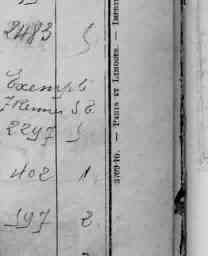 2483 5
Exempt
S. E.
2297 5
402 1
197 2
3709-10. — PARIS ET LIMOGES. — IMPRIM